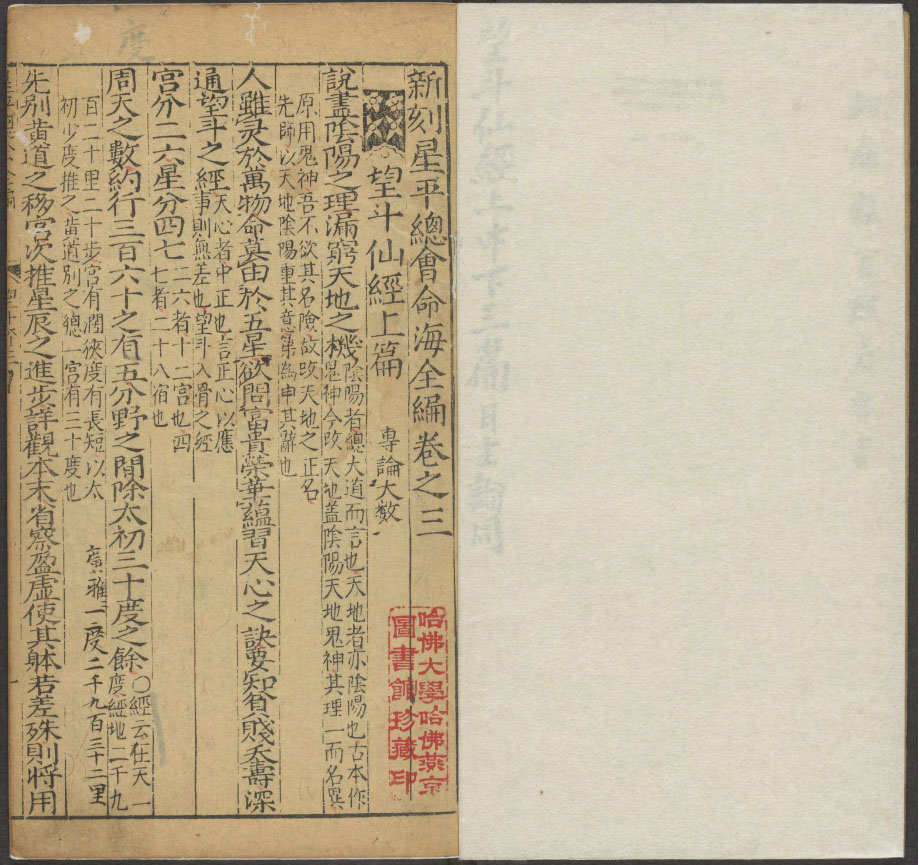 新刻星平總會命海全編卷之三
望斗仙經上篇 專論大数
說盡陰陽之理漏窮天地之機陰陽者總大道而言也天地者亦陰陽也古本作
鬼神今改天地盖陰陽天地鬼神其理一而名異
原用鬼神吾不欲其名險故改天地之正名
先師以天地陰陽重其意第為申其辭也
人雖灵於萬物命莫由於五星欲問富貴榮華蘊習天心之訣要知貧賤夭壽深
通望斗之經天心者中正也言正心以應
事則無差也望斗入骨之經
宫分二六星分四七二六者十二宫也四
七者二十八宿也
周天之數約行三百六十之有五分野之間除太初三十度之餘〇經云在天一
度經地二千九
百二十里二十步宫有濶狹度有長短以太
初少度推之黄道别之總一宫有三十度也
廣雅一度二千九百三十二里
先别黄道之移宫次推星辰之進步詳觀本末省察盈虚使其躰若差殊則將用
哈佛大學哈佛燕京
圖書館珍藏印
望斗仙經上中下三篇